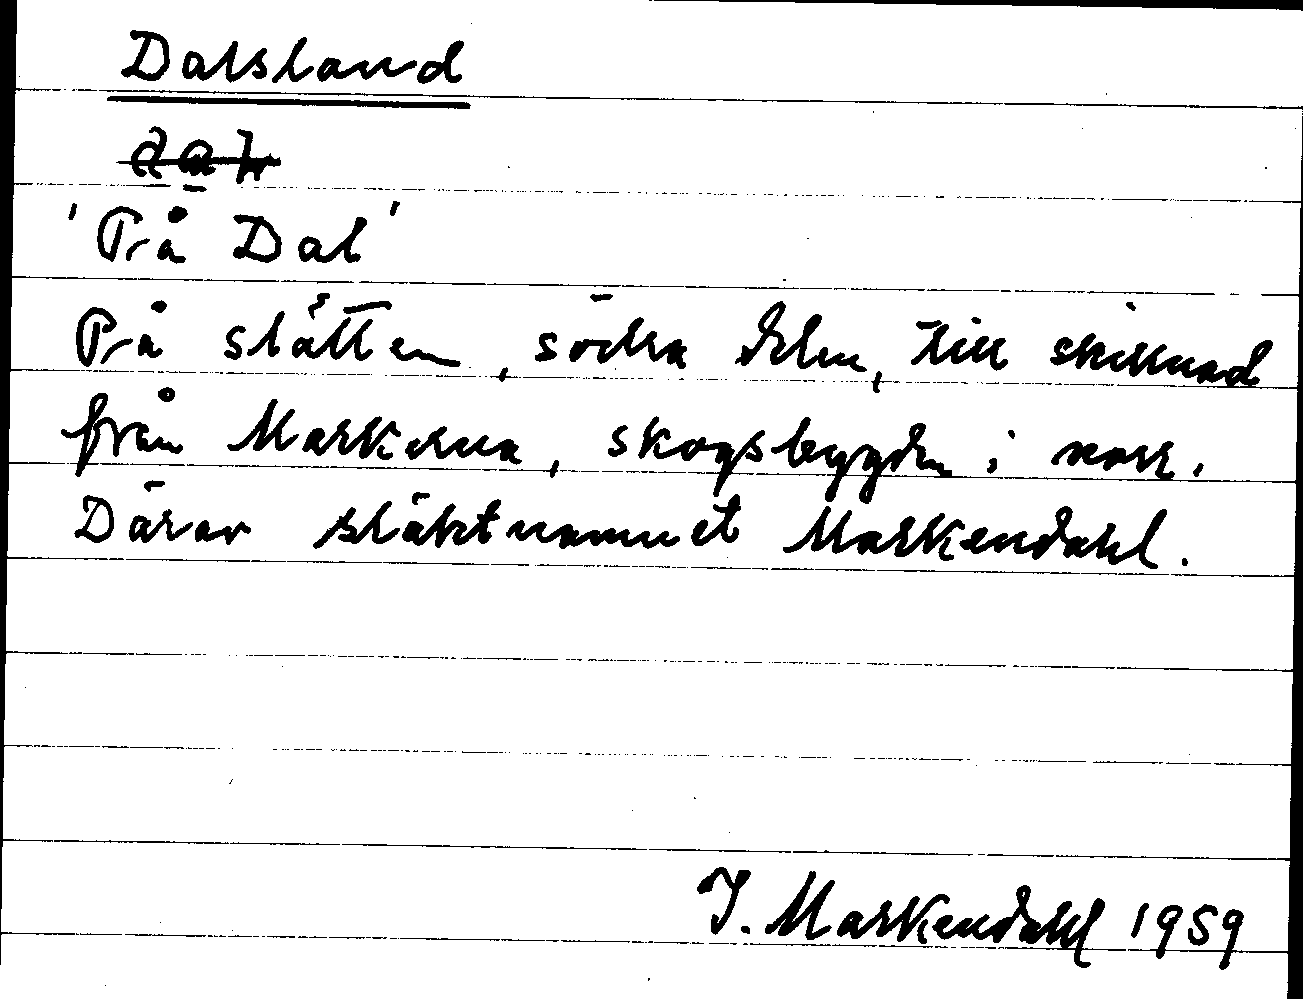 Dalsland
'På Dal'
På slätten, södra delen, till skillnad
från Markerna, skogsbygden i norr.
Därav släktnamnet Markendahl.
J. Markendahl 1959